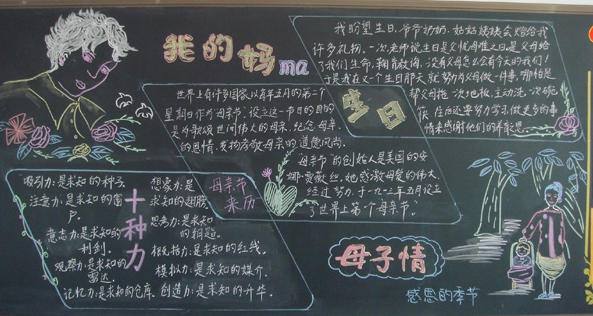 我的妈ma
我盼望生日,爷爷奶奶、姑姑姨姨会赠给我
许多礼物。一次,老师说生日是父忧母难之日,是父母给
了我们生命,辅育教诲,没有父母怎么会有今天的我们!
于是我在又一个生日那天就努力为父母做一件事,哪怕是
帮父母拖一次地板,主动洗一次碗
筷,在后还要努力学习做更多的事
情来感谢他们的养育恩。
生日
世界上有许多国家以每年五月的第二个
星期日作为母亲节。设立这一节日的目的
是为歌颂世间伟大的母亲,纪念母亲
的恩情,发扬孝敬母亲的道德风尚。
母亲节的创始人是美国的安
娜·贾薇丝,她感激母爱的伟大
经过努力,于一九一三年五月设立
了世界上第一个母亲节。
母亲节
来历
十种力
吸引力:是求知的种子。
注意力:是求知的窗
户。
意志力:是求知的
利剑。
观察力:是求知的
雷达。
记忆力:是求知的仓库。
想象力:是
求知的翅膀。
思考力:是求知
的钥匙。
概括力:是求知的红线。
模拟力:是求知的媒介。
创造力:是求知的升华。
母子情
感恩的季节